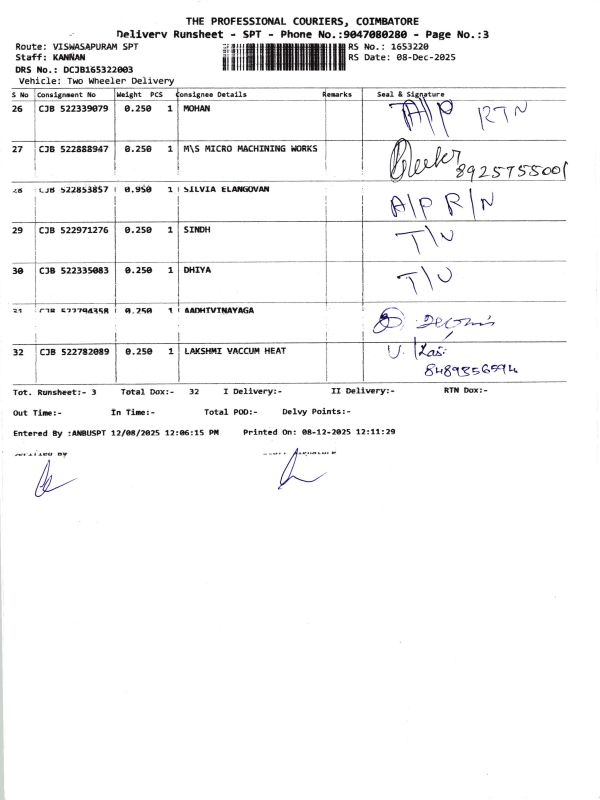 THE PROFESSIONAL COURIERS, COIMBATORE
Delivery Runsheet - SPT - Phone No.:9047080280 - Page No.:3
Route: VISWASAPURAM SPT RS No.: 1653220
Staff: KANNAN RS Date: 08-Dec-2025
DRS No.: DCJB165322003
Vehicle: Two Wheeler Delivery
S No Consignment No Weight PCS Consignee Details Remarks Seal & Signature
26 CJB 522339079 0.250 1 MOHAN A/P RTN
27 CJB 522888947 0.250 1 M\S MICRO MACHINING WORKS
8925755001
28 CJB 522853857 0.950 1 SILVIA ELANGOVAN A/P R/N
29 CJB 522971276 0.250 1 SINDH
30 CJB 522335083 0.250 1 DHIYA
31 CJB 522794358 0.250 1 AADHIVINAYAGA
32 CJB 522782089 0.250 1 LAKSHMI VACCUM HEAT
8489856594
Tot. Runsheet:- 3 Total Dox:- 32 I Delivery:- II Delivery:- RTN Dox:-
Out Time:- In Time:- Total POD:- Delvy Points:-
Entered By :ANBUSPT 12/08/2025 12:06:15 PM Printed On: 08-12-2025 12:11:29
Verified By Staff Signature